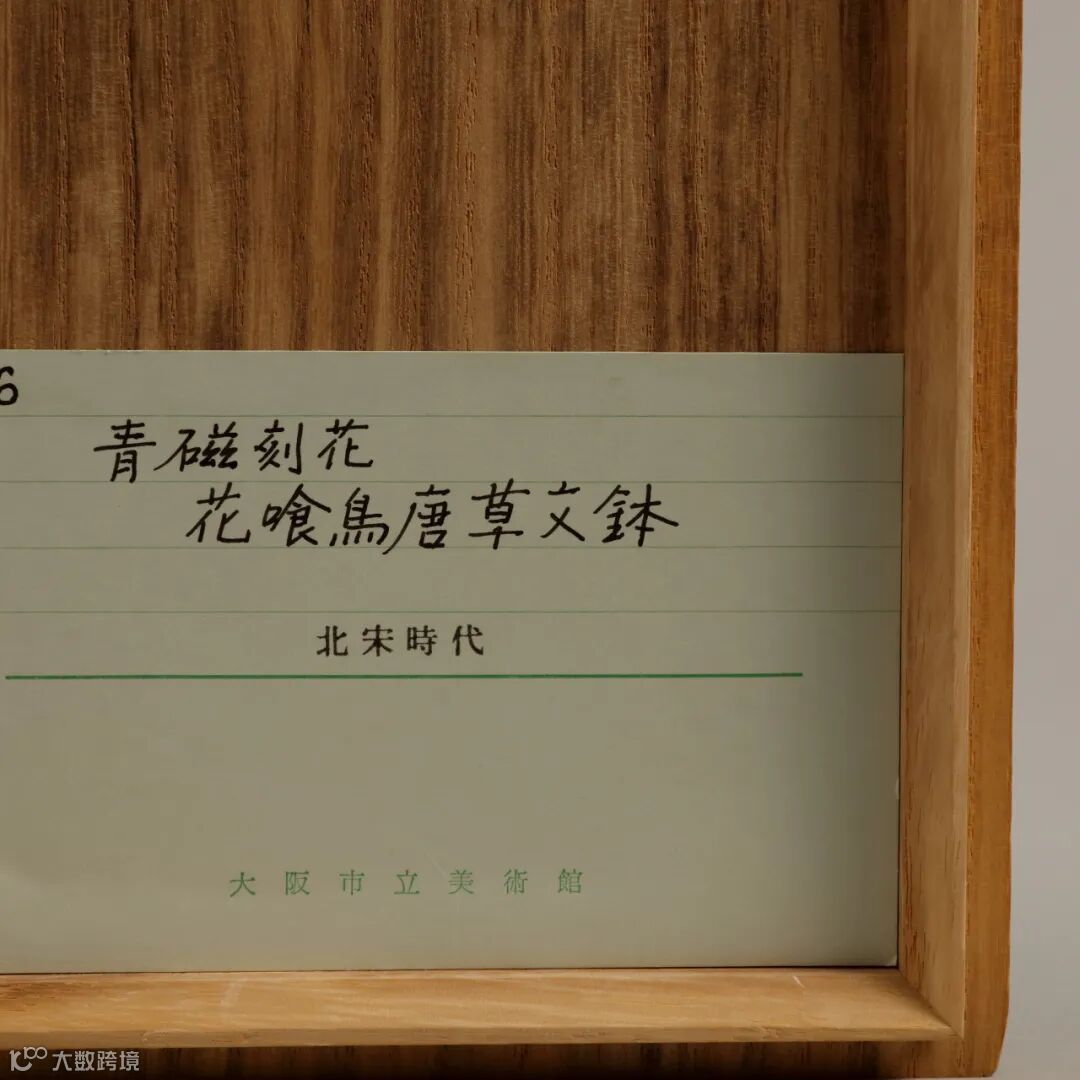 6
青磁刻花
花喰鳥唐草文鉢
北宋時代
大阪市立美術館
大数跨境